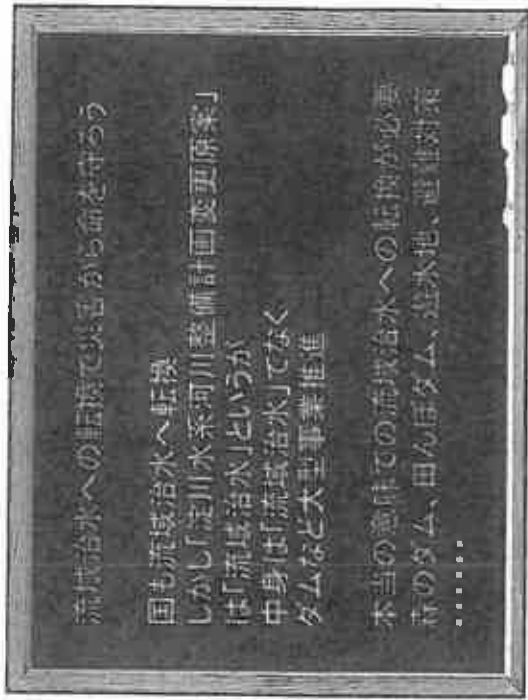 流域治水への転換で災害から命を守ろう
国も流域治水へ転換
しかし「淀川水系河川整備計画変更原案」
は「流域治水」というが
中身は「流域治水」でなく
ダムなど大型事業推進
本当の意味での流域治水への転換が必要
森のダム、田んぼダム、遊水地、避難対策
……